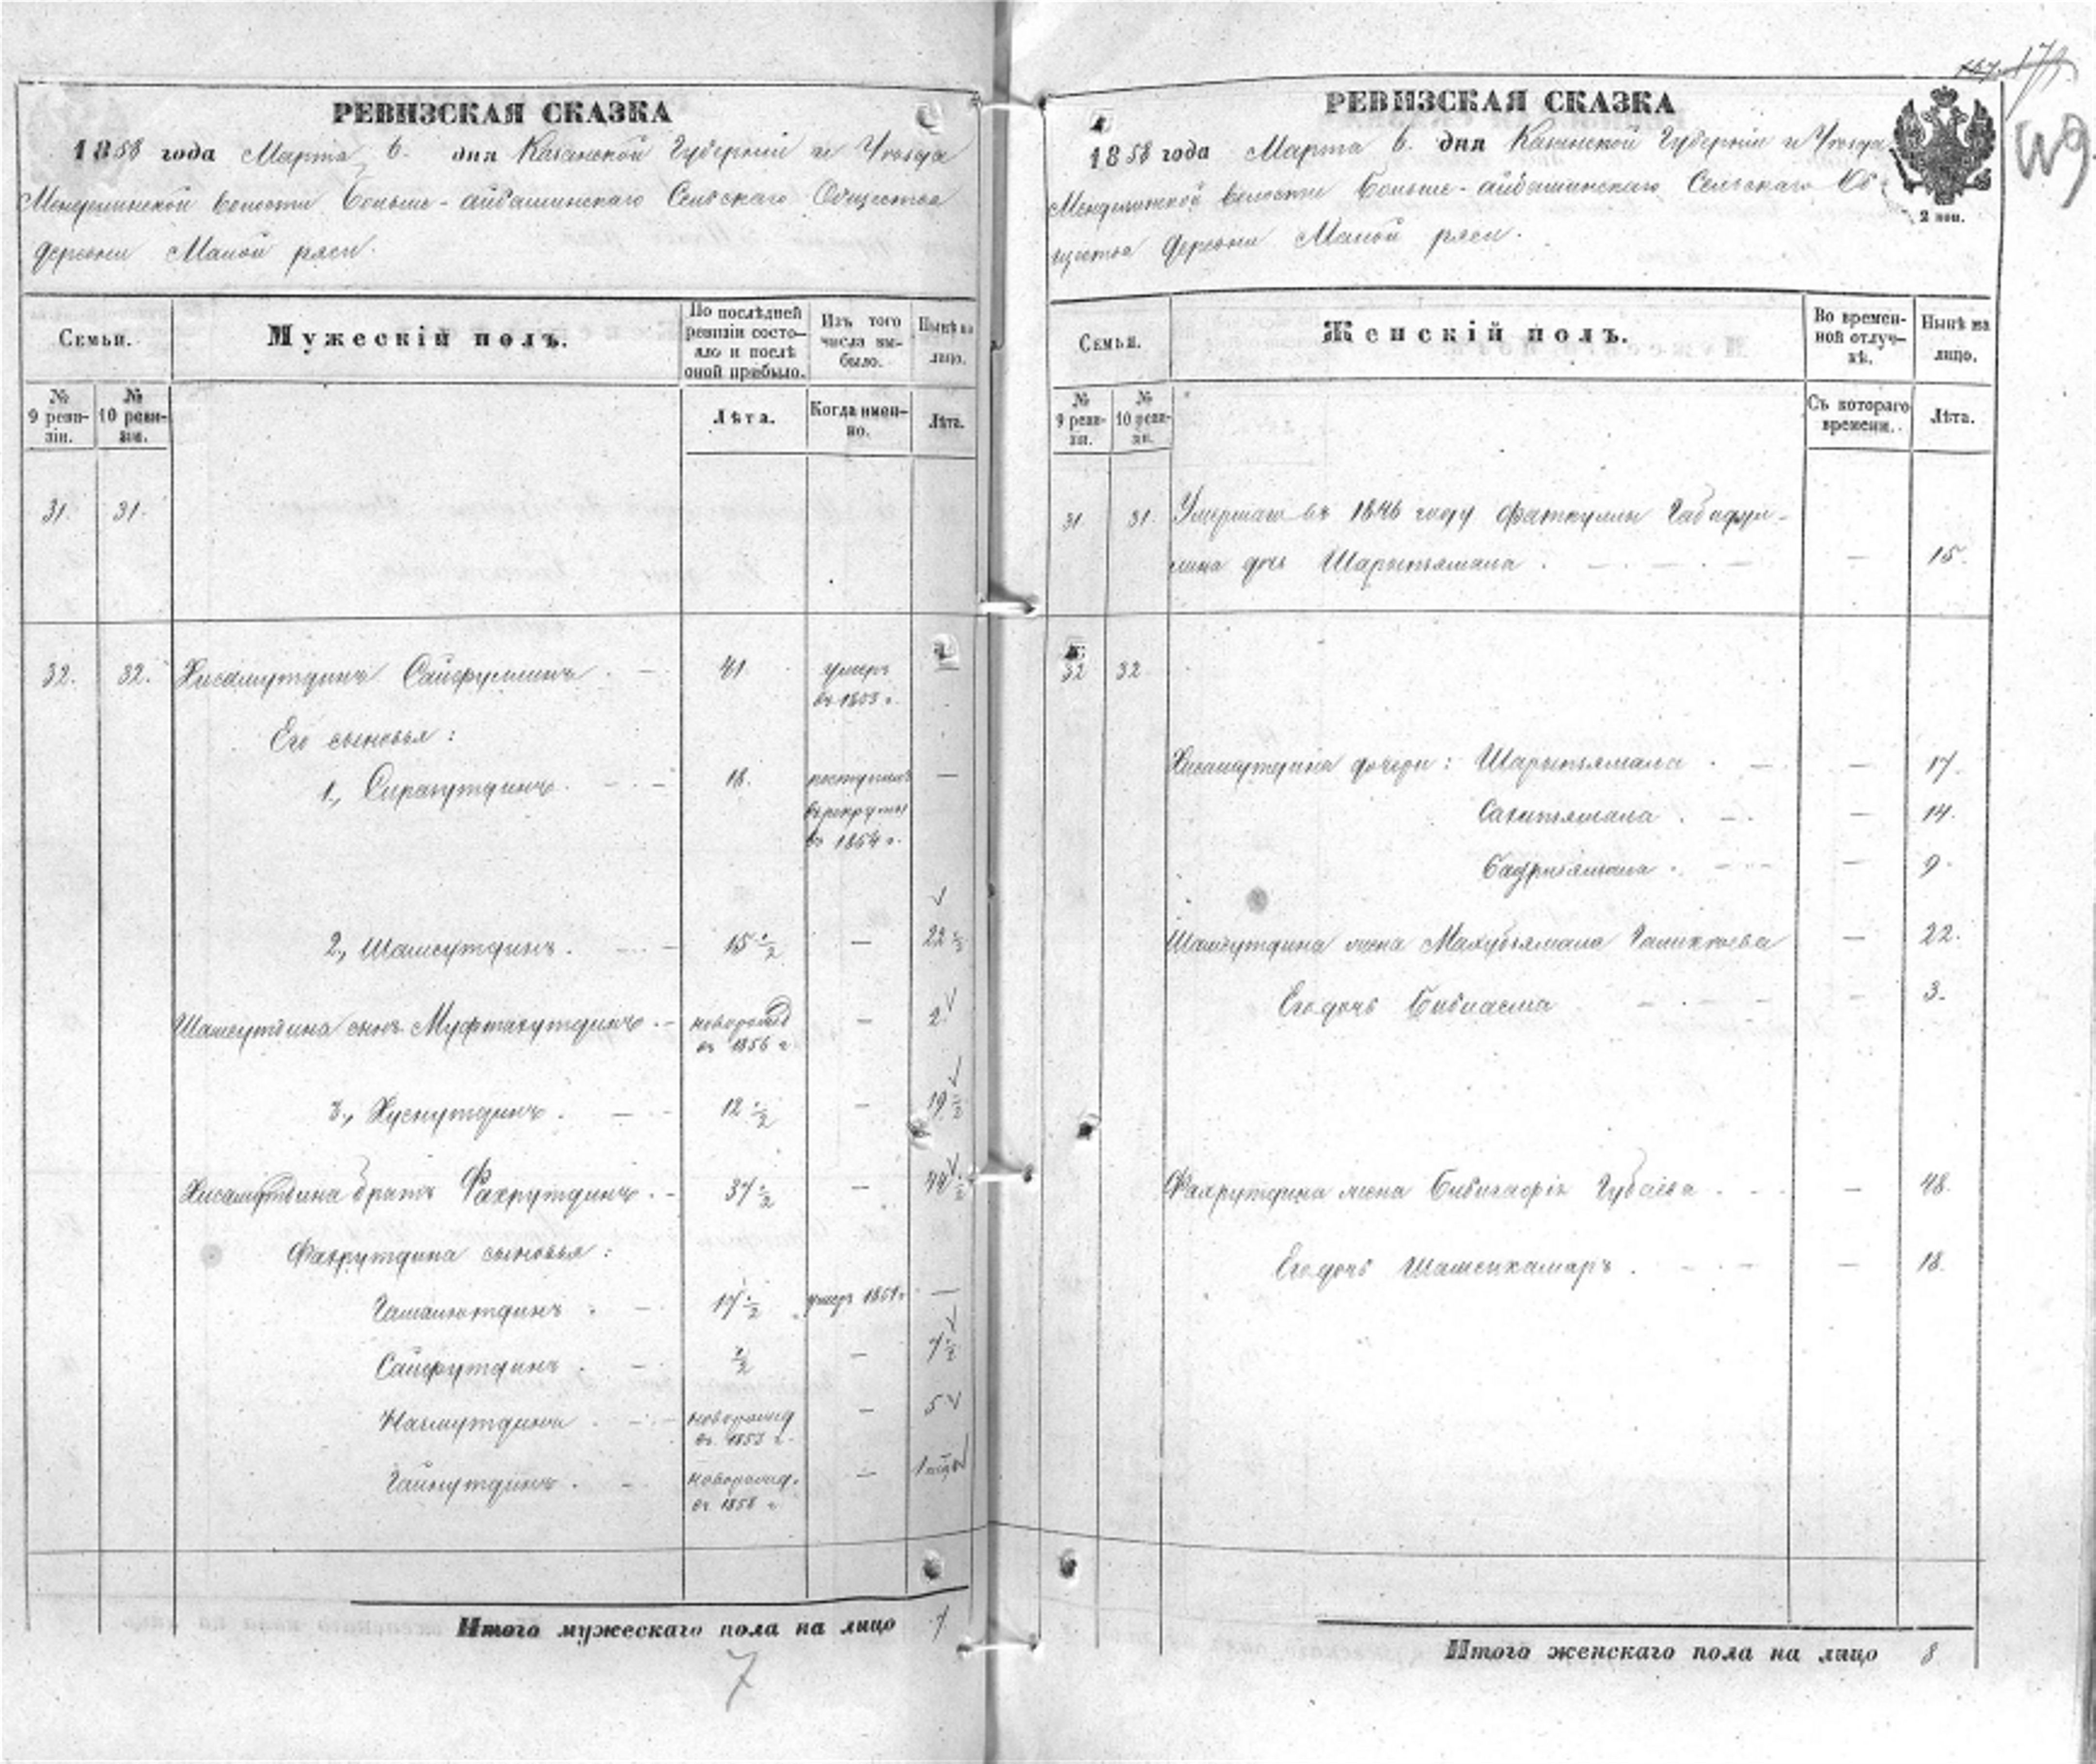 РЕВИЗСКАЯ СКАЗКА
1858 года Марта 6. дня Казанской Губернии и Уезда
Менделинской волости Больше-айбашинскаго Сельскаго Общества
деревни Малой ряси.
Семьи.
Мужескій полъ.
По послѣдней ревизіи состояло и послѣ оной прибыло.
Изъ того числа выбыло.
Нынѣ на лицо.
№ 9 ревизіи.
№ 10 ревизіи.
Лѣта.
Когда именно.
Лѣта.
31. 31.
32. 32. Хисамутдинъ Сайфуллинъ. 41 умеръ въ 1853 г. —
Его сыновья:
1., Сиразутдинъ. 18. поступилъ въ рекруты въ 1854 г. —
2., Шамсутдинъ. 15 ½ — 22 ½
Шамсутдина сынъ Муфтахутдинъ. новорожд въ 1856 г — 2
3., Хуснутдинъ. 12 ½ — 19 ½
Хисамутдина братъ Фахрутдинъ. 37 ½ — 44 ½
Фахрутдина сыновья:
Гамалютдинъ. 17 ½ умеръ 1851 г. —
Сайфутдинъ. ½ — 7 ½
Назмутдинъ. новорожд въ 1853 г. — 5
Гайнутдинъ. новорожд. въ 1858 г —
Итого мужескаго пола на лицо 7
7
179
РЕВИЗСКАЯ СКАЗКА
1858 года Марта 6. дня Казанской Губернии и Уезда
Менделинской волости Больше-айбашинскаго Сельскаго Об-
щества деревни Малой ряси.
2 коп.
Семьи.
Женскій полъ.
Во временной отлучкѣ.
Нынѣ на лицо.
№ 9 ревизіи.
№ 10 ревизіи.
Съ котораго времени.
Лѣта.
31 31. Умершаго въ 1846 году Фаткуллы Габидул-
лина дочь Шарыпъямала. — 15.
32 32
Хисамутдина дочери: Шарыпъямала. — 17.
Сагитъямала. — 14.
Бадригямала. — 9.
Шамсутдина жена Махубъямала Галикеева — 22.
Его дочь Бибиасма — 3.
Фахрутдина жена Губаева — 48.
Его дочь Шамсикамаръ. — 18.
Итого женскаго пола на лицо 8